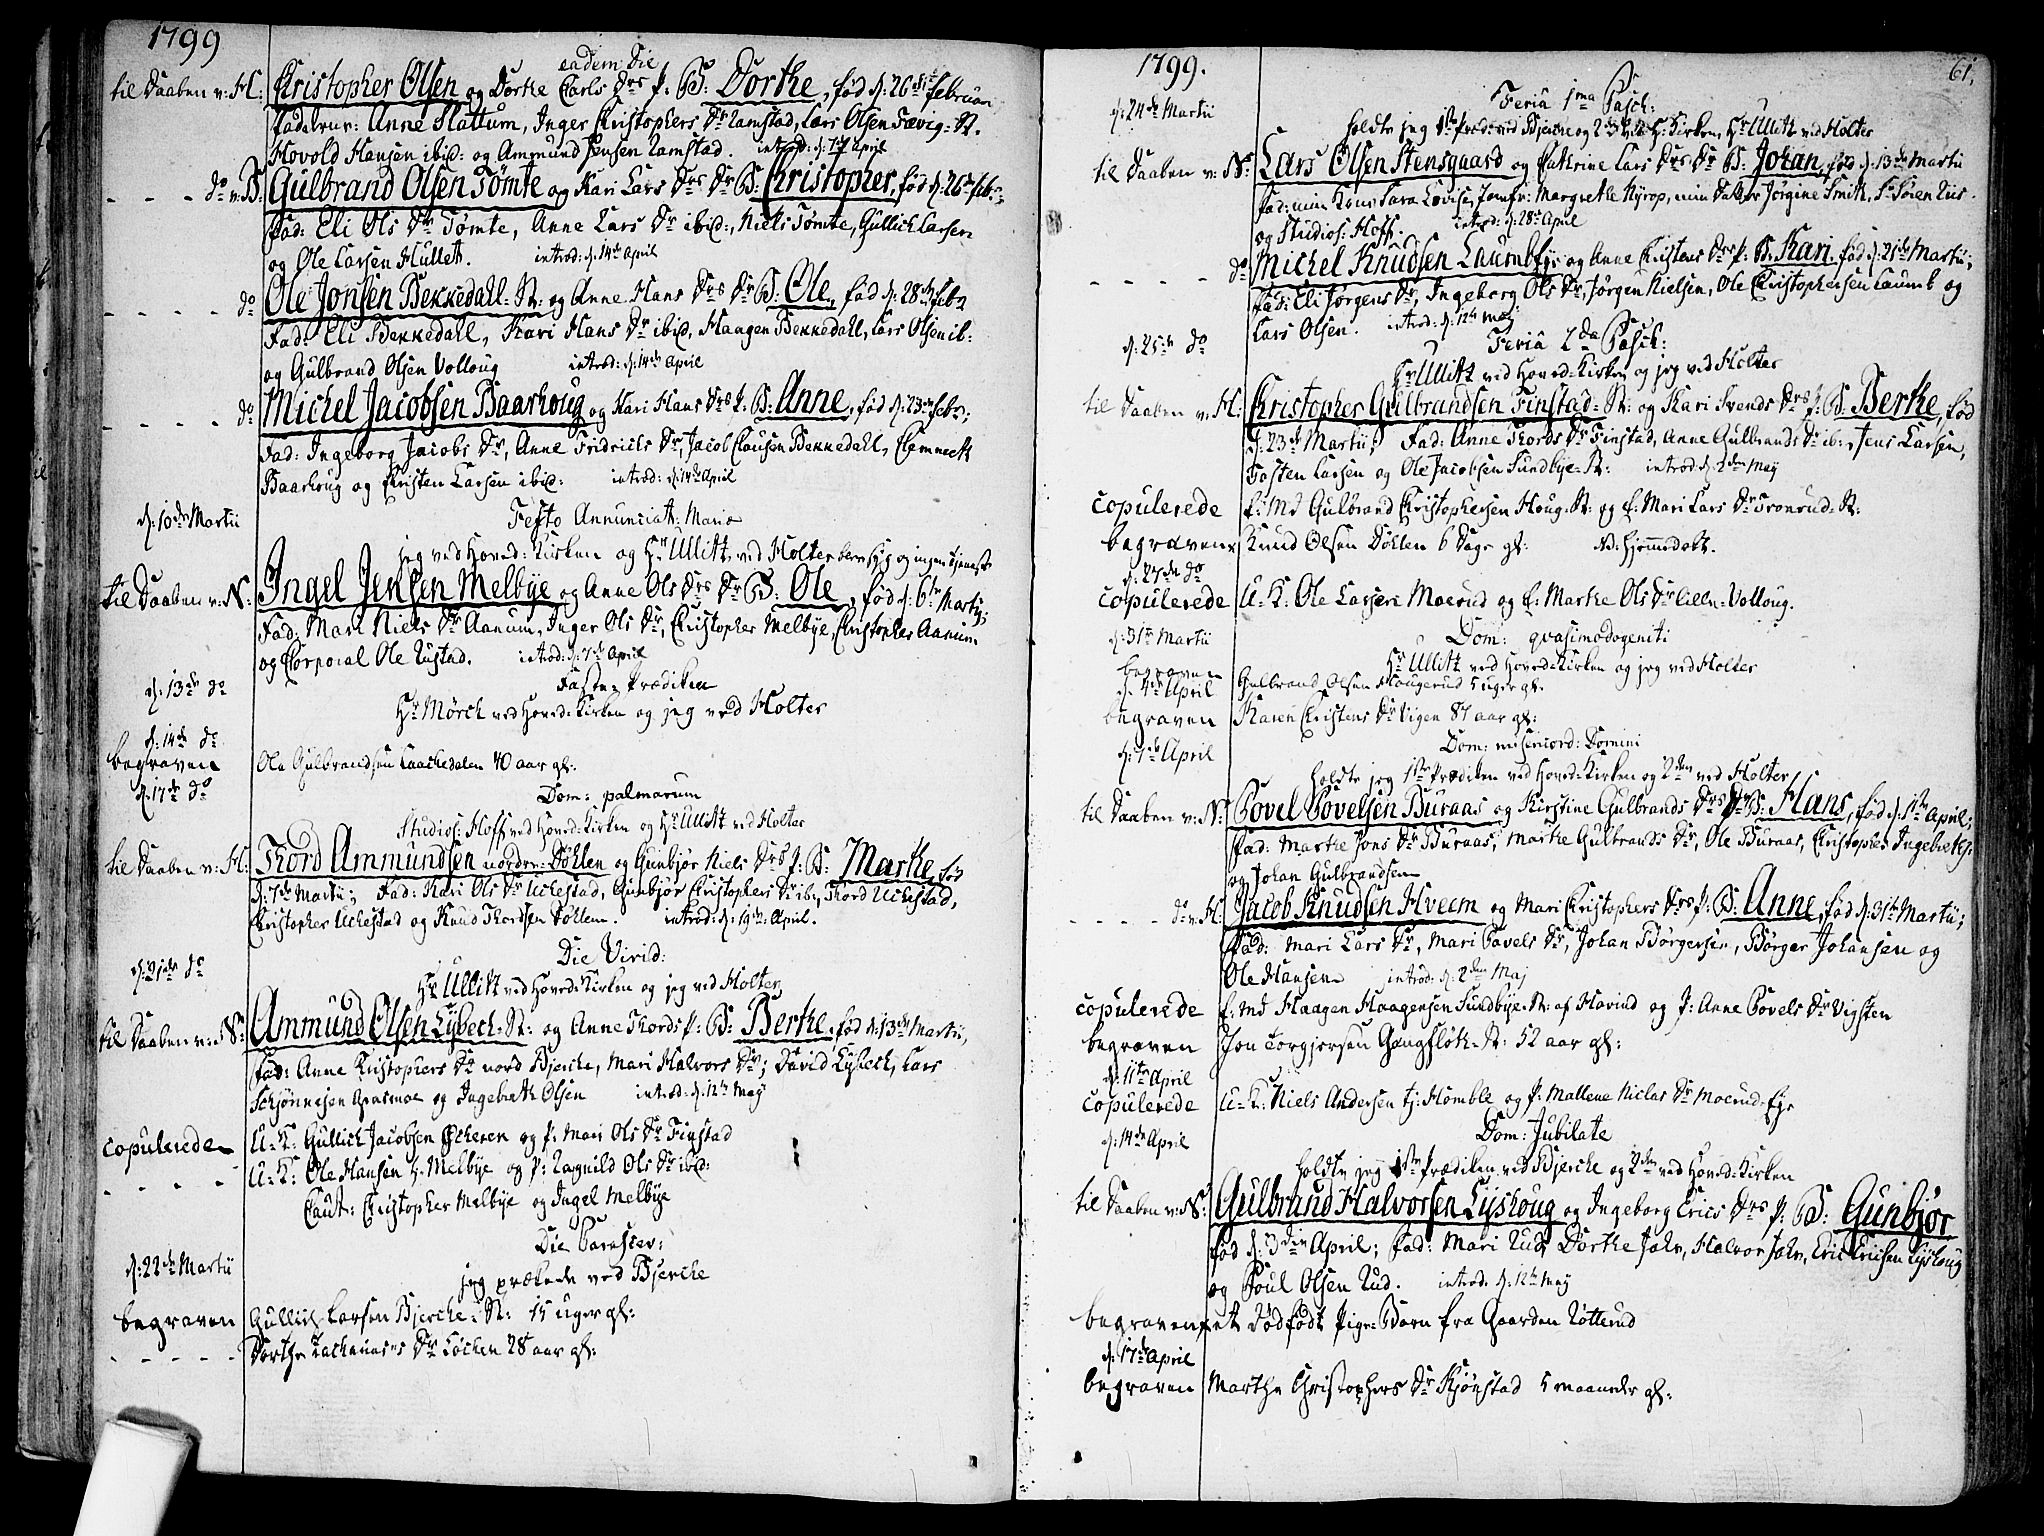 1799
eadem Die
til Daaben v: H: Christopher Olsen og Dorthe Carls Drs P: B: Dorthe, fød d: 26de Februari
Fadderne: Anne Slattum, Inger Christophers Dr Ramstad, Lars Olsen Fævig-St.
Hovold Hansen ibid: og Ammund Jensen Ramstad. introd: d: 14 April
- - - do v: B: Gulbrand Olsen Tømte og Kari Lars Drs Dr B: Christopher, fød d: 26de Febr:
Fad: Eli Ols Dr Tømte, Anne Lars Dr ibid:, Niels Tømte, Gullich Larsen
og Ole Larsen Hullet. introd: d: 14de April
- - - - do Ole Jonsen Bekkedahl-St: og Anne Hans Drs Dr B: Ole, fød d: 28de Febr
Fad: Eli Bekkedahl, Kari Hans Dr ibid, Haagen Bekkedahl, Lars Olsen ib-
og Gulbrand Olsen Volloug introd: d: 14de April
- - - - do Michel Jacobsen Baarhoug og Kari Hans Drs P: B: Anne, fød d: 23de Febr:;
Fad: Ingeborg Jacobs Dr, Anne Fridrichs Dr, Jacob Clausen Bekkedahl, Clemmeth
Baarhoug og Christen Larsen ibid: introd: d: 14de April
d: 10de Martii Festo Annunciat: Mariæ
jeg ved Hoved-Kirken og Hr Ullitz ved Holter
til Daaben v: N: Ingel Jensen Melbye og Anne Ols Drs Dr B: Ole, fød d: 6te Martii;
Fad: Mari Niels Dr Aanum, Inger Ols Dr, Christopher Melbye, Christopher Aanum
og Corporal Ole Rustad. introd: d: 7de April
d: 13de do Faste-Prædiken
Hr Mørch ved Hoved-Kirken og jeg ved Holter
d: 14de do
begraven Ole Gulbrandsen Laachedalen 40 aar gl:
d: 17de do Dom: palmarum
Studios: Hoff ved Hoved-Kirken og Hr Ullitz ved Holter
til Daaben v: H: Thord Ammundsen nordre-Døhlen og Gunbjør Niels Drs P: B: Marthe, fød
d: 7de Martii; Fad: Kari Ols Dr Uchestad, Gunbjør Christophers Dr ib:, Thord Uchestad,
Christopher Uchestad og Knud Thordsen Døhlen. introd: d: 19de April.
d: 21de do Die Virid:
Hr Ullitz ved Hoved-Kirken og jeg ved Holter
til Daaben v: N: Ammund Olsen Lybech-St: og Anne Thords P: B: Berthe, fød d: 13de Martii,
Fad: Anne Christophers Dr nord Bjerche, Mari Halvors Dr; David Lybech, Lars
Schjønnesen Graamoe og Ingebreth Olsen introd: d: 12te May
copulerede U-K: Gullich Jacobsen Ocheren og P: Mari Ols Dr Finstad
- - - - U-K: Ole Hansen h. Melbye og P: Ragnild Ols Dr ibid:
Caut: Christopher Melbye og Ingel Melbye
Die Parascev:
d: 22de Martii jeg prækede ved Bjerche
begraven Gullich Larsen Bjerche-St: 15 uger gl:
- - - - - Dorthe Zachariases Dr Løchen 28 aar gl:
1799. 61.
d: 24de Martii Feriâ 1ma Pasch:
holdte jeg 1ste Præd: ved Bjerche og 2den ved H: Kirken, Hr Ullitz ved Holter
til Daaben v: N: Lars Olsen Stensgaard og Cathrine Lars Drs Dr B: Johan, fød d: 13de Martii
Fad: min Kone Sara Lovise, Jomfr: Margrethe Kyrop, min Datter Jørgine Smith, Sr Søren Riis
og Studios: Hoff. introd: d: 28de April
- - - - do Michel Knudsen Laurnbfye og Anne Christens Drs P: B: Kari, fød d: 21de Martii;
Fad: Eli Jørgens Dr, Ingeborg Ols Dr, Jørgen Nielsen, Ole Christophersen Laumb og
Lars Olsen. introd: d: 12te May
d: 25de do Feriâ 2da Pasch:
Hr Ullitz ved Hoved-Kirken og jeg ved Holter
til Daaben v: H: Christopher Gulbrandsen Finstad-St: og Kari Svends Drs P: B: Berthe, fød
d: 23de Martii; Fad: Anne Thords Dr Finstad, Anne Gulbrands Dr ib:, Jens Larsen,
Tosten Larsen og Ole Jacobsen Sundbye-St: introd: d: 2den May
copulerede E: Md Gulbrand Christophersen Houg-St: og E: Mari Lars Dr Tronrud-St:
begraven Knud Olsen Døhlen 6 Dage gl: N: hjemmedøbt.
d: 27de do
copulerede U-K: Ole Larsen Moerud og E: Marthe Ols Dr lille-Volloug.
d: 31te Martii Dom: qvasimodogeniti
Hr Ullitz ved Hoved-Kirken og jeg ved Holter
begraven Gulbrand Olsen Hougerud 5 uger gl.
d: 4de April
begraven Karen Christens Dr Vigen 87 aar gl:
d: 7de April Dom: misericord: Domini
holdte jeg 1ste Prædiken ved Hoved-Kirken og 2den ved Holter
til Daaben v: N: Povel Povelsen Buraas og Kirstine Gulbrands Drs Dr B: Hans, fød d: 1ste April;
Fad: Marthe Jons Dr Buraas, Marthe Gulbrands Dr, Ole Buraas, Christopher Ingebreths:
og Johan Gulbrandsen
- - - - do v: H: Jacob Knudsen Hveem og Mari Christophers Drs P: B: Anne, fød d: 31te Martii;
Fad: Mari Lars Dr, Mari Povels Dr, Johan Børgersen, Børger Johansen og
Ole Hansen introd: d: 2den Maj
copulerede E: Md Haagen Haagensen Sundbye-St: af Hovind og P: Anne Povels Dr Vigsten
begraven Jon Torgjersen Gangfløth-St: 52 aar gl:
d: 11te April
copulerede U-K: Niels Andersen tj: Homble og P: Mallene Niclas Dr Moerud-Eje
d: 14de April Dom: Jubilate
holdte jeg 1ste Prædiken ved Bjerche og 2den ved Hoved-Kirken
til Daaben v: N: Gulbrand Halvorsen Lyshoug og Ingeborg Erics Drs P: B: Gunbjør
fød d: 3die April; Fad: Mari Rud, Dorthe Jahr, Halvor Jahr, Eric Ericsen Lyshoug
og Poul Olsen Rud. introd: d: 12te May
begraven et dødfødt Pige-Barn fra Gaarden Røtterud
d: 17de April
begraven Marthe Christophers Dr Kjønstad 5 maaneder gl: